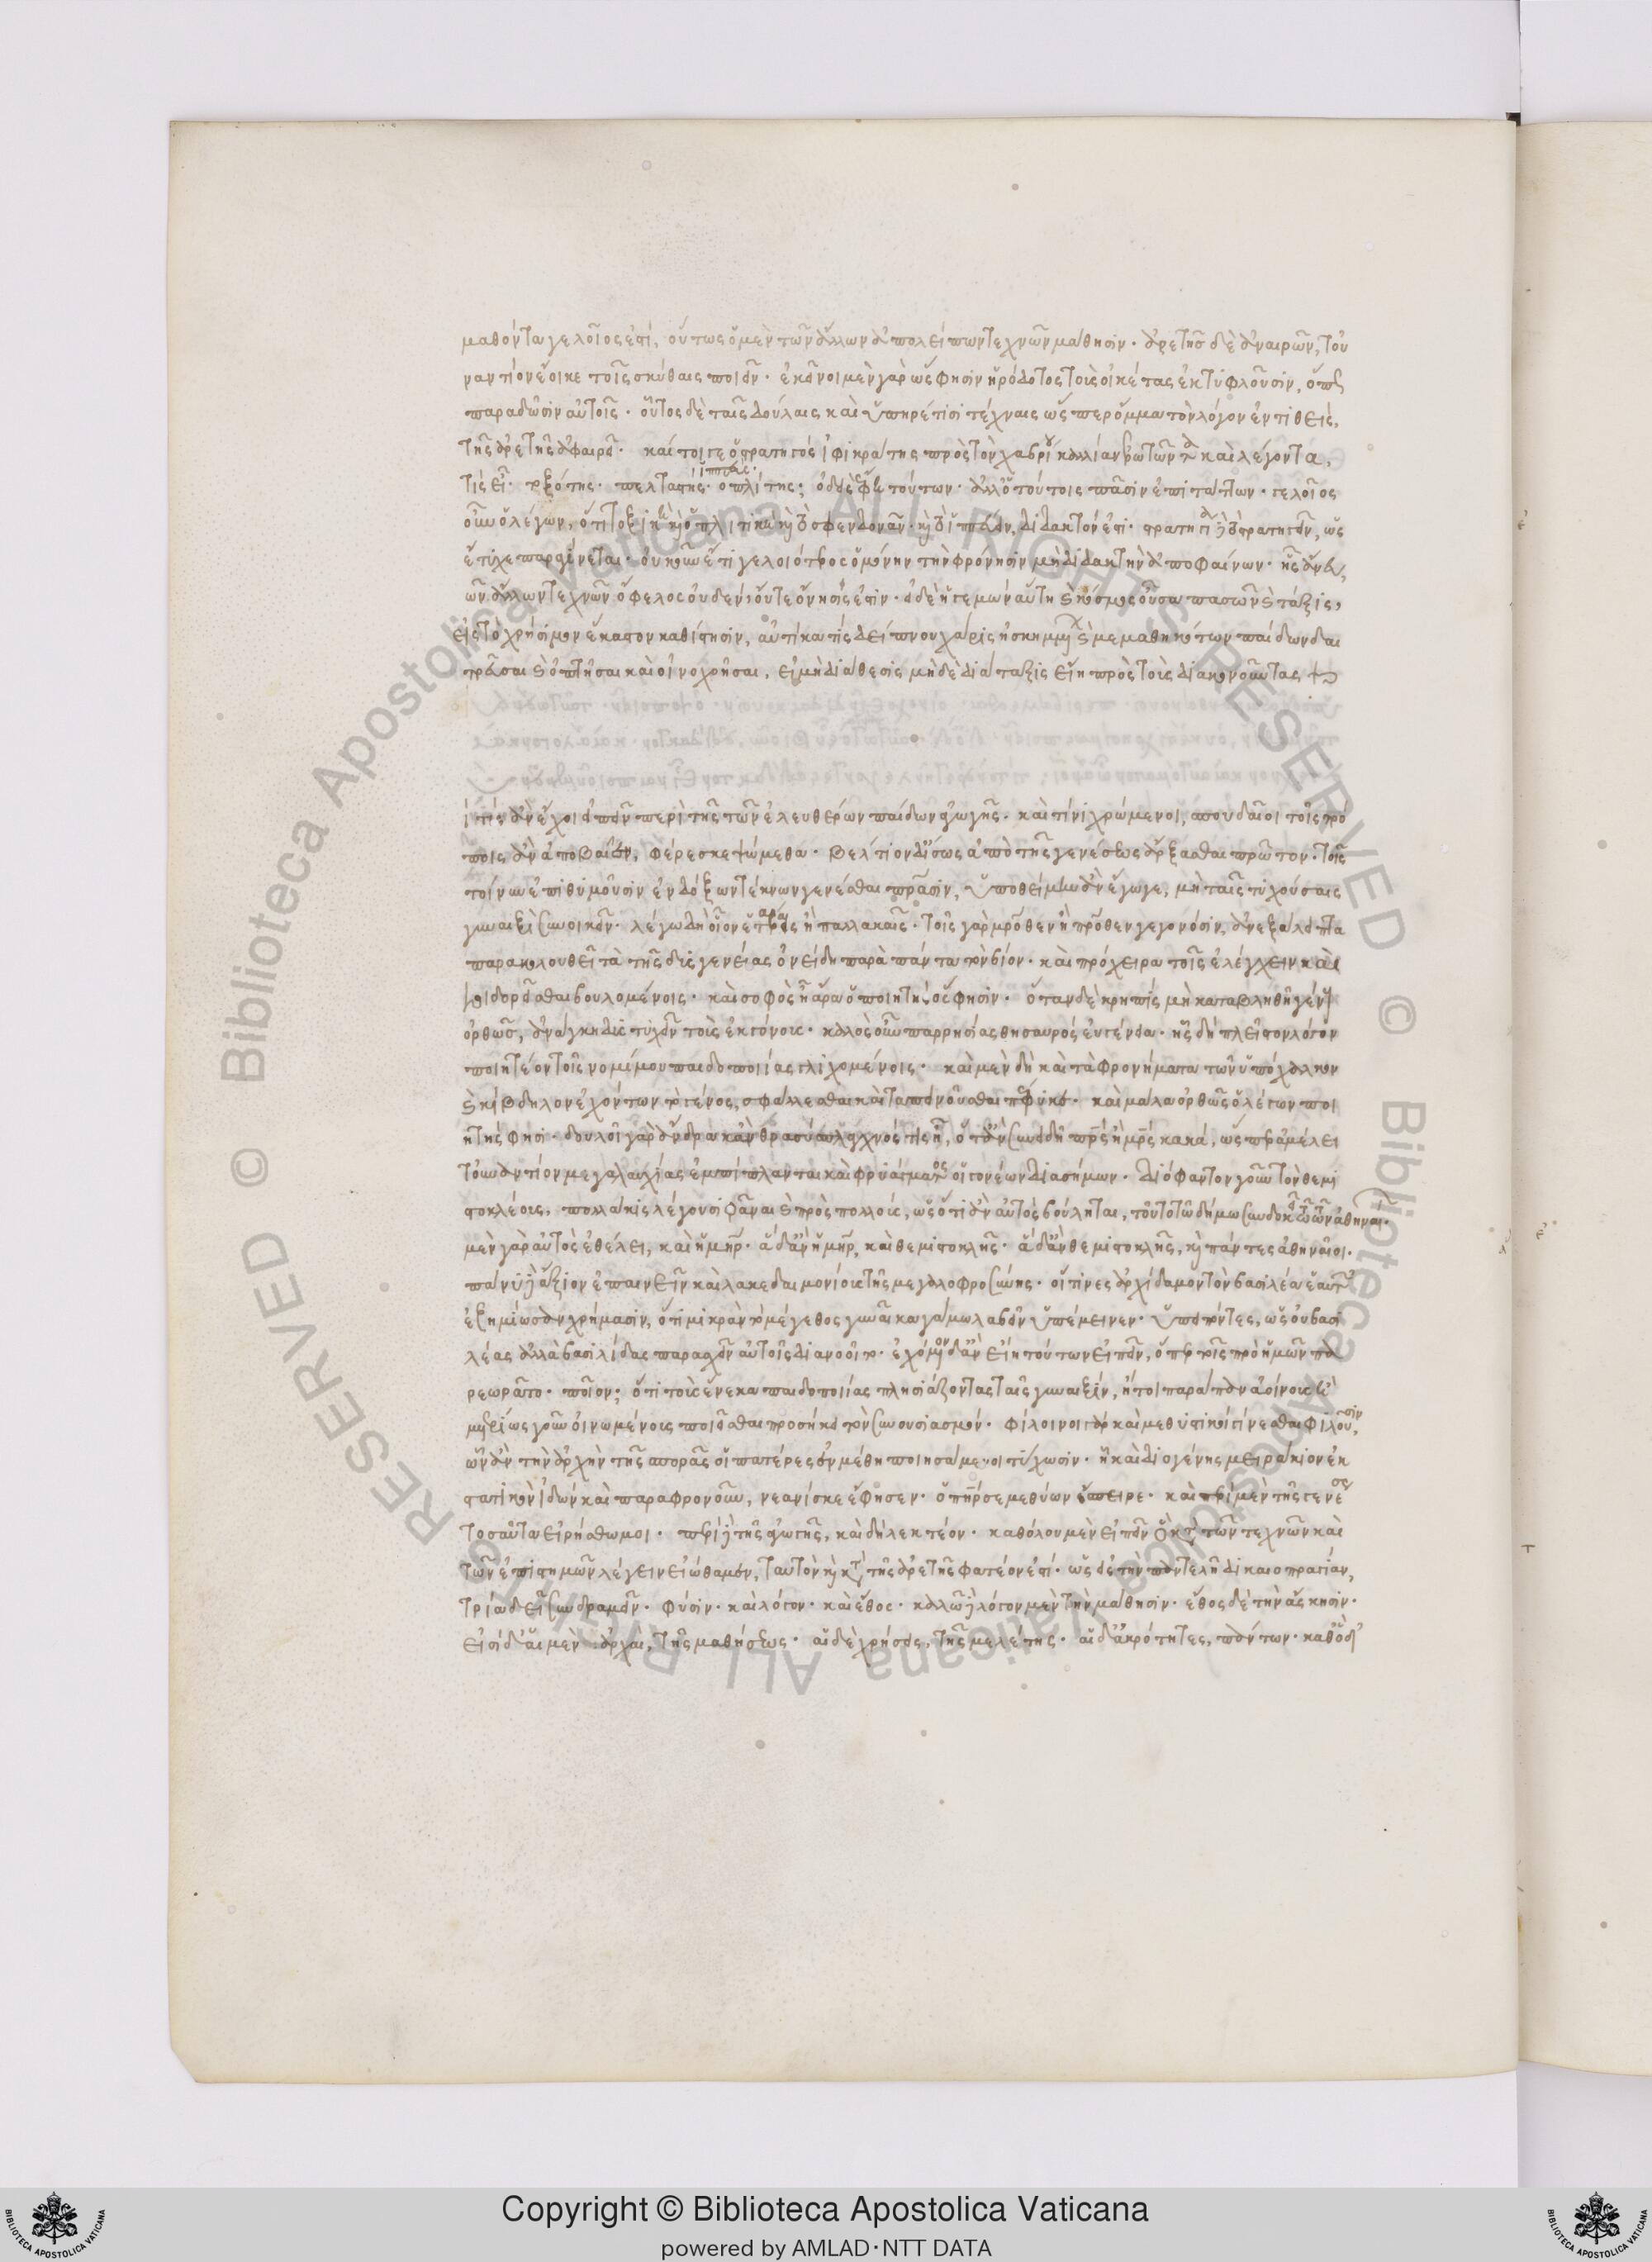 μαθόντα γελοῖος ἐστί, οὕτως ὁ μὲν τῶν ἄλλων ἀπολείπων τεχνῶν μάθησιν· ἀρετῆς δὲ ἀναιρῶν, τοὐ
ναντίον ἔοικε τοῖς σκύθαις ποιεῖν· ἐκεῖνοι μὲν γὰρ ὥς φησιν ἡρόδοτος τοὺς οἰκέτας ἐκτυφλοῦσιν, ὅπως
παραδῶσιν αὐτοῖς· οὗτος δὲ ταῖς δούλαις καὶ ὑπηρέτισι τέχναις ὥσπερ ὄμμα τὸν λόγον ἐντιθεὶς,
τῆς ἀρετῆς ἀφαιρεῖ· καίτοι γε ὁ στρατηγὸς ἰφικράτης πρὸς τὸν χαβρίου καλλίαν ἐρωτῶντα καὶ λέγοντα,
τίς εἶ· τοξότης· πελταστής· ἱππεύς· ὁπλίτης; οὐδεὶς ἔφη τούτων· ἀλλ' ὁ τούτοις πᾶσιν ἐπιτάττων· γελοῖος
οὖν ὁ λέγων, ὅτι τοξικὴ καὶ ὁπλιτικὴ καὶ τὸ σφενδονᾶν· καὶ τὸ ἱππεύειν, διδακτόν ἐστι· στρατηγικὴ δὲ καὶ τὸ στρατηγεῖν, ὡς
ἔτυχε παραγίνεται· οὐκοῦν ἔτι γελοιότερος ὁ μόνην τὴν φρόνησιν μὴ διδακτὴν ἀποφαίνων· ἧς ἄνευ,
τῶν ἄλλων τεχνῶν ὄφελος οὐδέν, οὔτε ὄνησίς ἐστιν· εἰ δὲ ἡγεμὼν αὕτη καὶ κόσμος οὖσα πασῶν καὶ τάξις,
εἰς τὸ χρήσιμον ἕκαστον καθίστησιν, αὐτίκα τίς δείπνου χάρις ἠσκημένων καὶ μεμαθηκότων παίδων δαι
τρεῦσαι καὶ ὀπτῆσαι καὶ οἰνοχοῆσαι, εἰ μὴ διάθεσις μηδὲ διάταξις εἴη πρὸς τοὺς διακονοῦντας
τίς ἂν ἔχοι εἰπεῖν περὶ τῆς τῶν ἐλευθέρων παίδων ἀγωγῆς· καὶ τίνι χρώμενοι, σπουδαῖοι τοὺς τρό
πους ἂν ἀποβαῖεν, φέρε σκεψώμεθα· βέλτιον δ' ἴσως ἀπὸ τῆς γενέσεως ἄρξασθαι πρῶτον· τοῖς
τοίνυν ἐπιθυμοῦσιν ἐνδόξων τέκνων γενέσθαι πατράσιν, ὑποθείμην ἂν ἔγωγε, μὴ ταῖς τυχούσαις
γυναιξὶ συνοικεῖν· λέγω δὴ οἷον ἑταίραις ἢ παλλακαῖς· τοῖς γὰρ μητρόθεν ἢ πατρόθεν γεγονόσιν, ἀνεξάλειπτα
παρακολουθεῖ τὰ τῆς δυσγενείας ὀνείδη παρὰ πάντα τὸν βίον· καὶ πρόχειρα τοῖς ἐλέγχειν καὶ
λοιδορεῖσθαι βουλομένοις· καὶ σοφὸς ἦν ἄρα ὁ ποιητὴς ὅς φησιν· ὅταν δὲ κρηπὶς μὴ καταβληθῇ γένους
ὀρθῶς, ἀνάγκη δυστυχεῖν τοὺς ἐκγόνους· καλὸς οὖν παρρησίας θησαυρὸς εὐγένεια· ἧς δὴ πλεῖστον λόγον
ποιητέον τοῖς νομίμου παιδοποιίας γλιχομένοις· καὶ μὲν δὴ καὶ τὰ φρονήματα τῶν ὑπόχαλκον
καὶ κίβδηλον ἐχόντων τὸ γένος, σφάλλεσθαι καὶ ταπεινοῦσθαι πέφυκε· καὶ μάλα ὀρθῶς ὁ λέγων ποι
ητής φησι· δουλοῖ γὰρ ἄνδρα κἂν θρασύσπλαγχνός τις ᾖ, ὅταν συνειδῇ πατρὸς ἢ μητρὸς κακά, ὥσπερ ἀμέλει
τοὐναντίον μεγαλαυχίας ἐμπίπλανται καὶ φρυάγματος οἱ γονέων διασήμων· διόφαντον γοῦν τὸν θεμι
στοκλέους, πολλάκις λέγουσι φάναι καὶ πρὸς πολλοὺς, ὡς ὅ τι ἂν αὐτὸς βούληται, τοῦτο τῷ δήμῳ συνδοκεῖ τῶν ἀθηναίων·
μὲν γὰρ αὐτὸς ἐθέλει, καὶ ἡ μήτηρ· ἃ δ' ἂν ἡ μήτηρ, καὶ θεμιστοκλῆς· ἃ δ' ἂν θεμιστοκλῆς, καὶ πάντες ἀθηναῖοι·
πάνυ δὲ ἄξιον ἐπαινεῖν καὶ λακεδαιμονίους τῆς μεγαλοφροσύνης· οἵτινες ἀρχίδαμον τὸν βασιλέα ἑαυτῶν
ἐζημίωσαν χρήμασιν, ὅτι μικρὰν τὸ μέγεθος γυναῖκα γάμῳ λαβεῖν ὑπέμεινεν· ὑπειπόντες, ὡς οὐ βασι
λέας ἀλλὰ βασιλίδας παρασχεῖν αὐτοῖς διανοοῖτο· ἐχόμενον δ' ἂν εἴη τούτων εἰπεῖν, ὅπερ τοῖς πρὸ ἡμῶν πα
ρεωρᾶτο· ποῖον; ὅτι τοὺς ἕνεκα παιδοποιίας πλησιάζοντας ταῖς γυναιξὶν, ἤτοι παράπαν ἀοίνους ἢ
μετρίως γοῦν οἰνωμένους ποιεῖσθαι προσήκει τὸν συνουσιασμόν· φίλοινοι γὰρ καὶ μεθυστικοὶ γίνεσθαι φιλοῦσιν,
ὧν ἂν τὴν ἀρχὴν τῆς σπορᾶς οἱ πατέρες ἐν μέθῃ ποιησάμενοι τύχωσιν· ᾗ καὶ διογένης μειράκιον ἐκ
στατικὸν ἰδὼν καὶ παραφρονοῦν, νεανίσκε ἔφησεν· ὁ πατήρ σε μεθύων ἔσπειρε· καὶ περὶ μὲν τῆς γενέσεως
τοσαῦτα εἰρήσθω μοι· περὶ δὲ τῆς ἀγωγῆς, καὶ δὴ λεκτέον· καθόλου μὲν εἰπεῖν ὃ κατὰ τῶν τεχνῶν καὶ
τῶν ἐπιστημῶν λέγειν εἰώθαμεν, ταυτὸν καὶ κατὰ τῆς ἀρετῆς φατέον ἐστί· ὡς εἰς τὴν παντελῆ δικαιοπραγίαν,
τρία δεῖ συνδραμεῖν· φύσιν· καὶ λόγον· καὶ ἔθος· καλῶ δὲ λόγον μὲν τὴν μάθησιν· ἔθος δὲ τὴν ἄσκησιν·
εἰσὶ δ' αἱ μὲν ἀρχαὶ, τῆς μαθήσεως· αἱ δὲ χρήσεις, τῆς μελέτης· αἱ δ' ἀκρότητες, πάντων· καθ' ὃ δ'
Copyright © Biblioteca Apostolica Vaticana
powered by AMLAD·NTT DATA